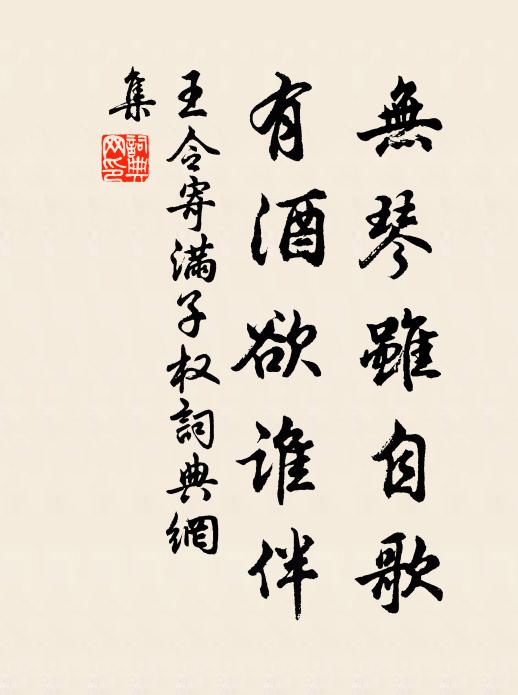 無琴雖自歌
有酒欲誰伴
王令寄滿子权詞典網
集
詞典網印